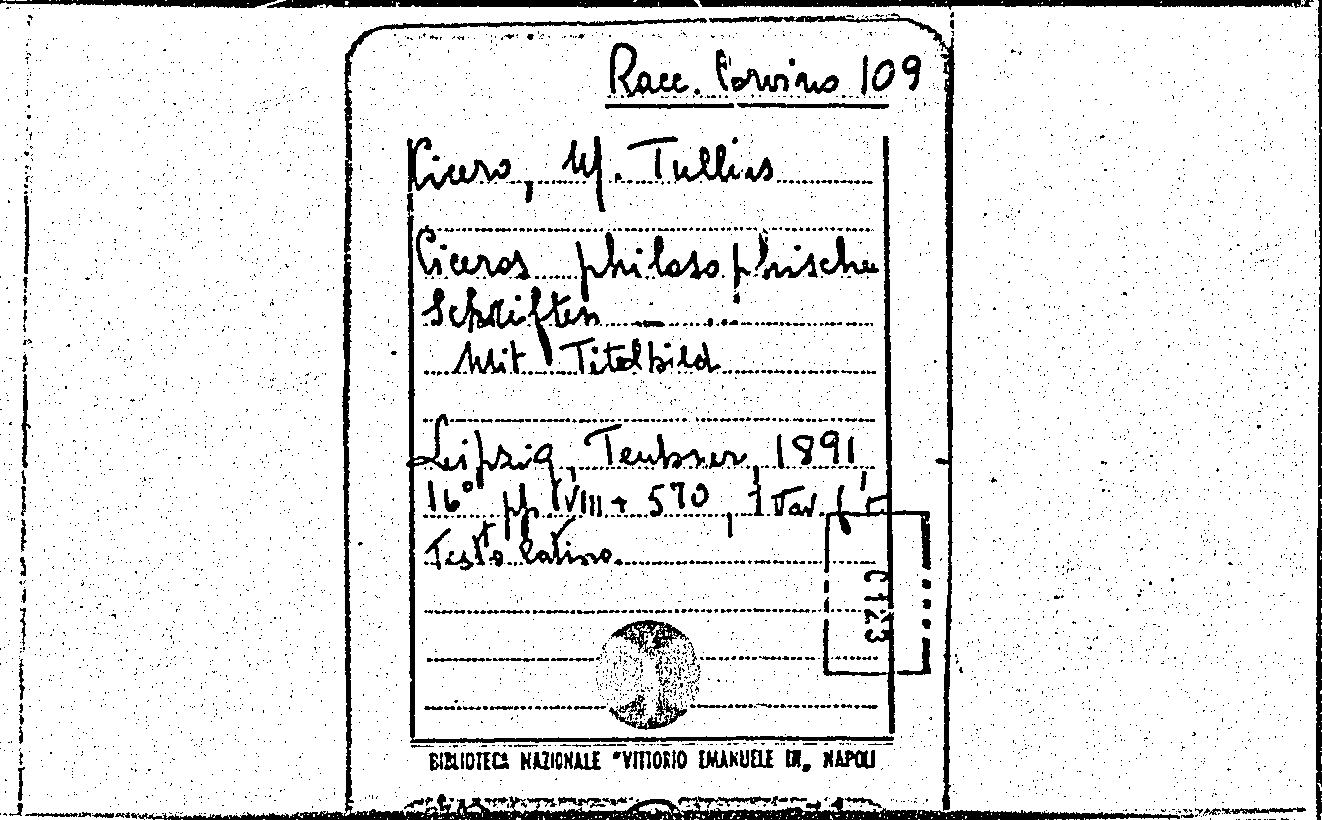 Racc. Corvino 109
Cicero, M. Tullius
Ciceros philosophische
Schriften ... ...
Mit Titelbild
Leipzig, Teubner, 1891
16° pp VIII + 570, 1 tav. f. t.
Testo latino.
C123
BIBLIOTECA NAZIONALE "VITTORIO EMANUELE III„ NAPOLI